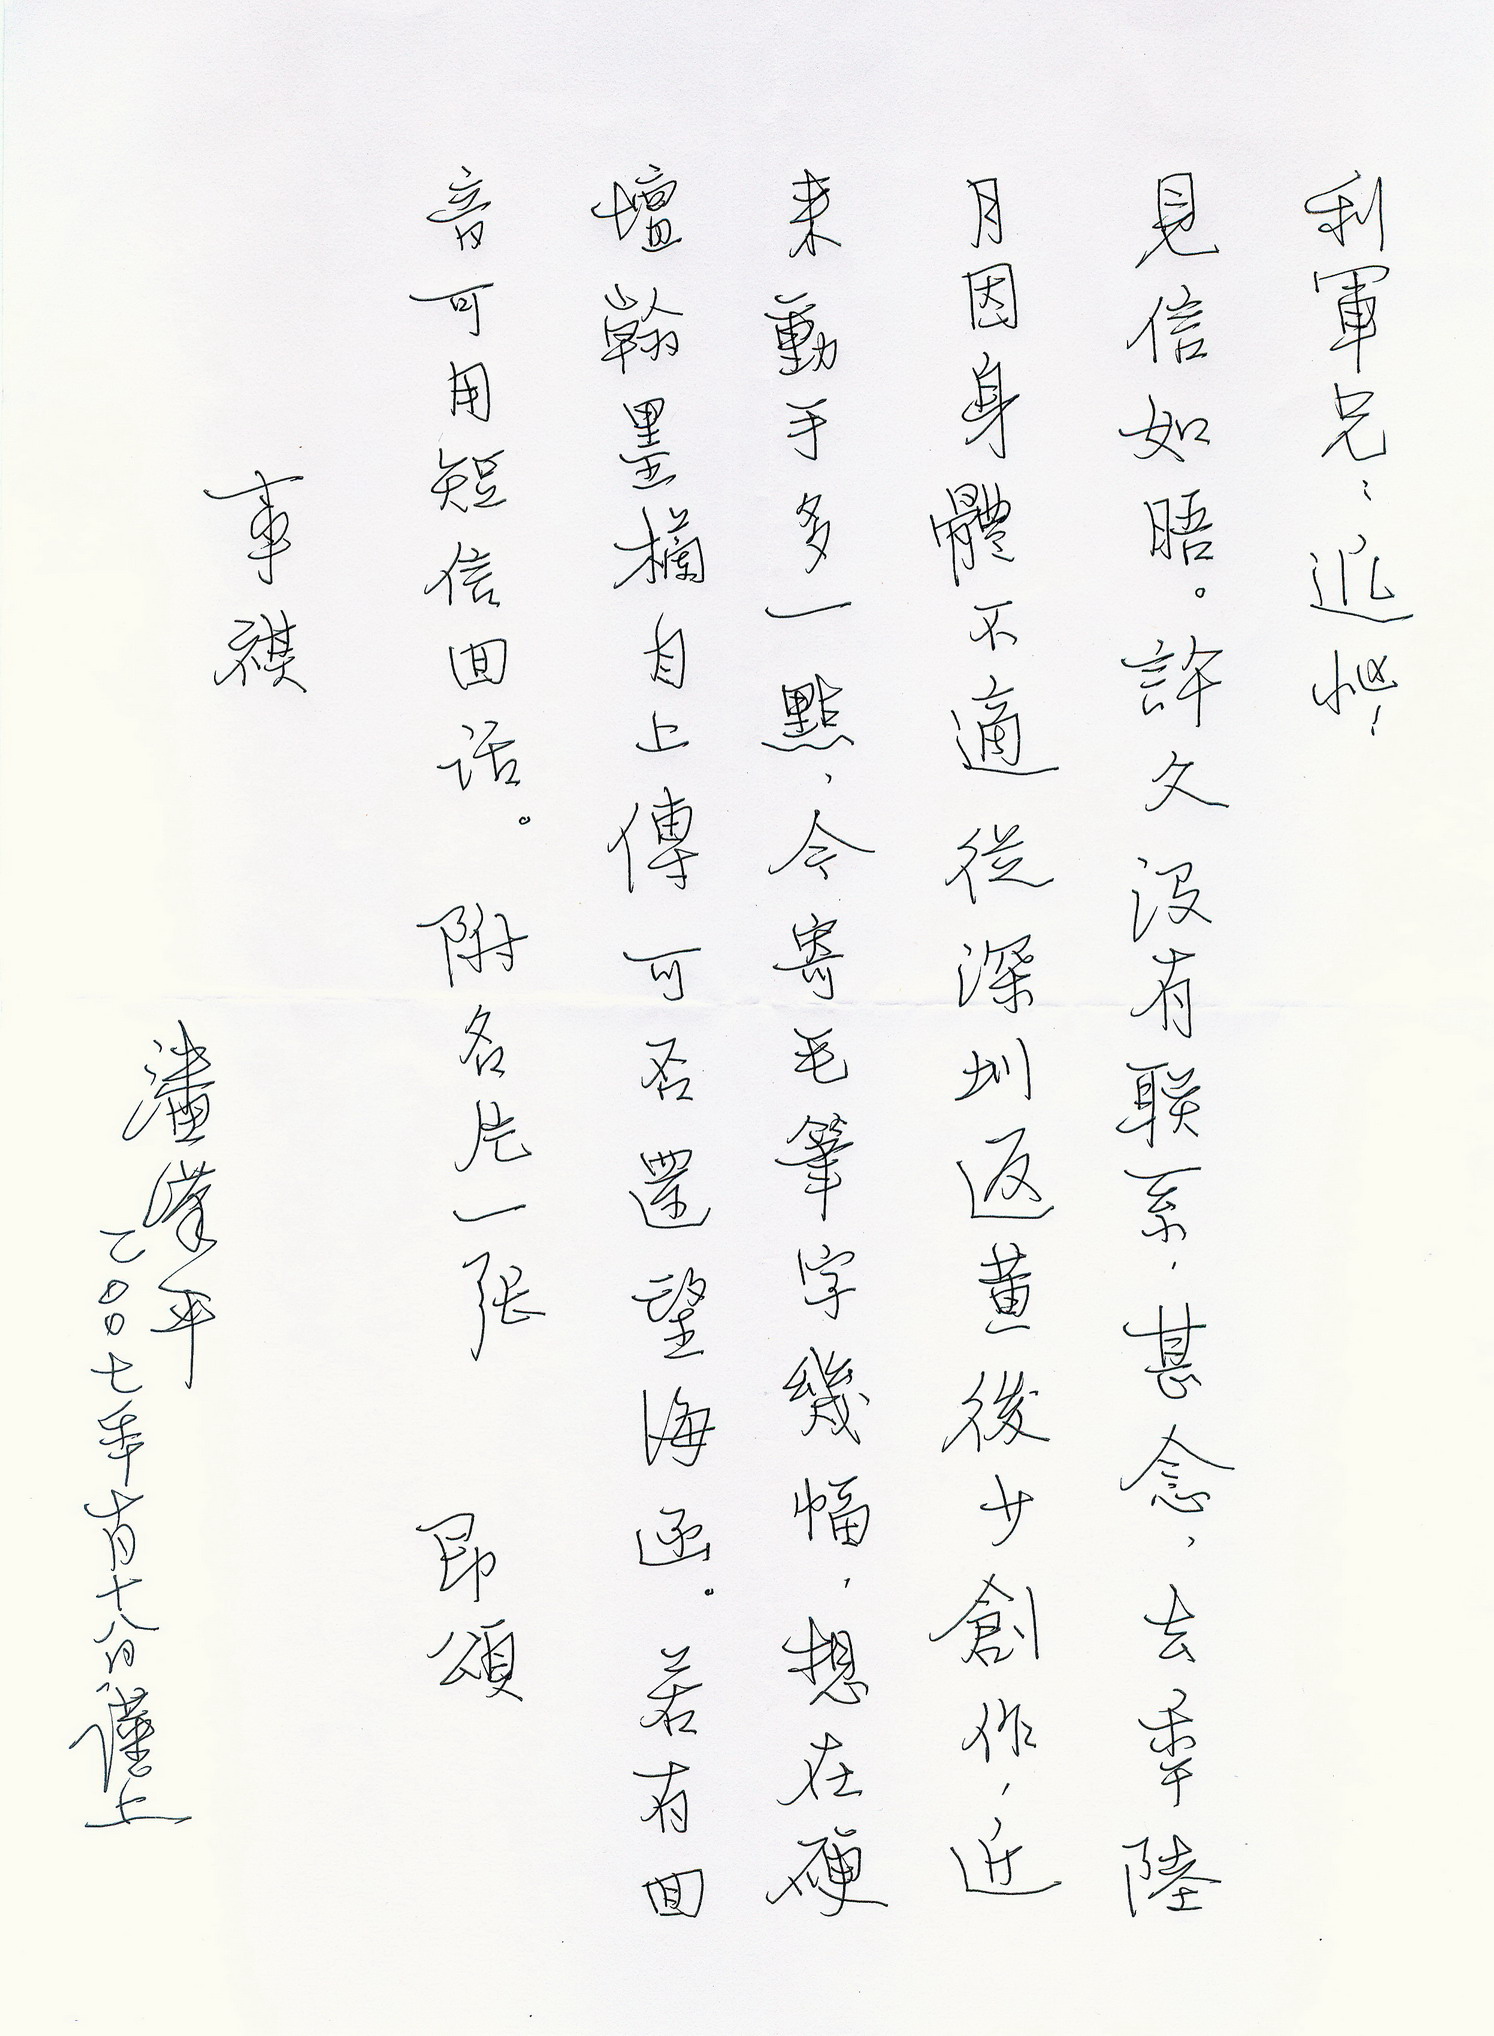 利軍兄：近忙！
見信如晤。許久没有联系，甚念，去年陸
月因身體不適從深圳返黄後少創作，近
来動手多一點，今寄毛筆字幾幅，想在硬
壇翰墨欄目上傳可否還望海函。若有回
音可用短信回话。 附名片一张 即頌
事祺
潘漢平
二〇〇七年十月十八日謹上